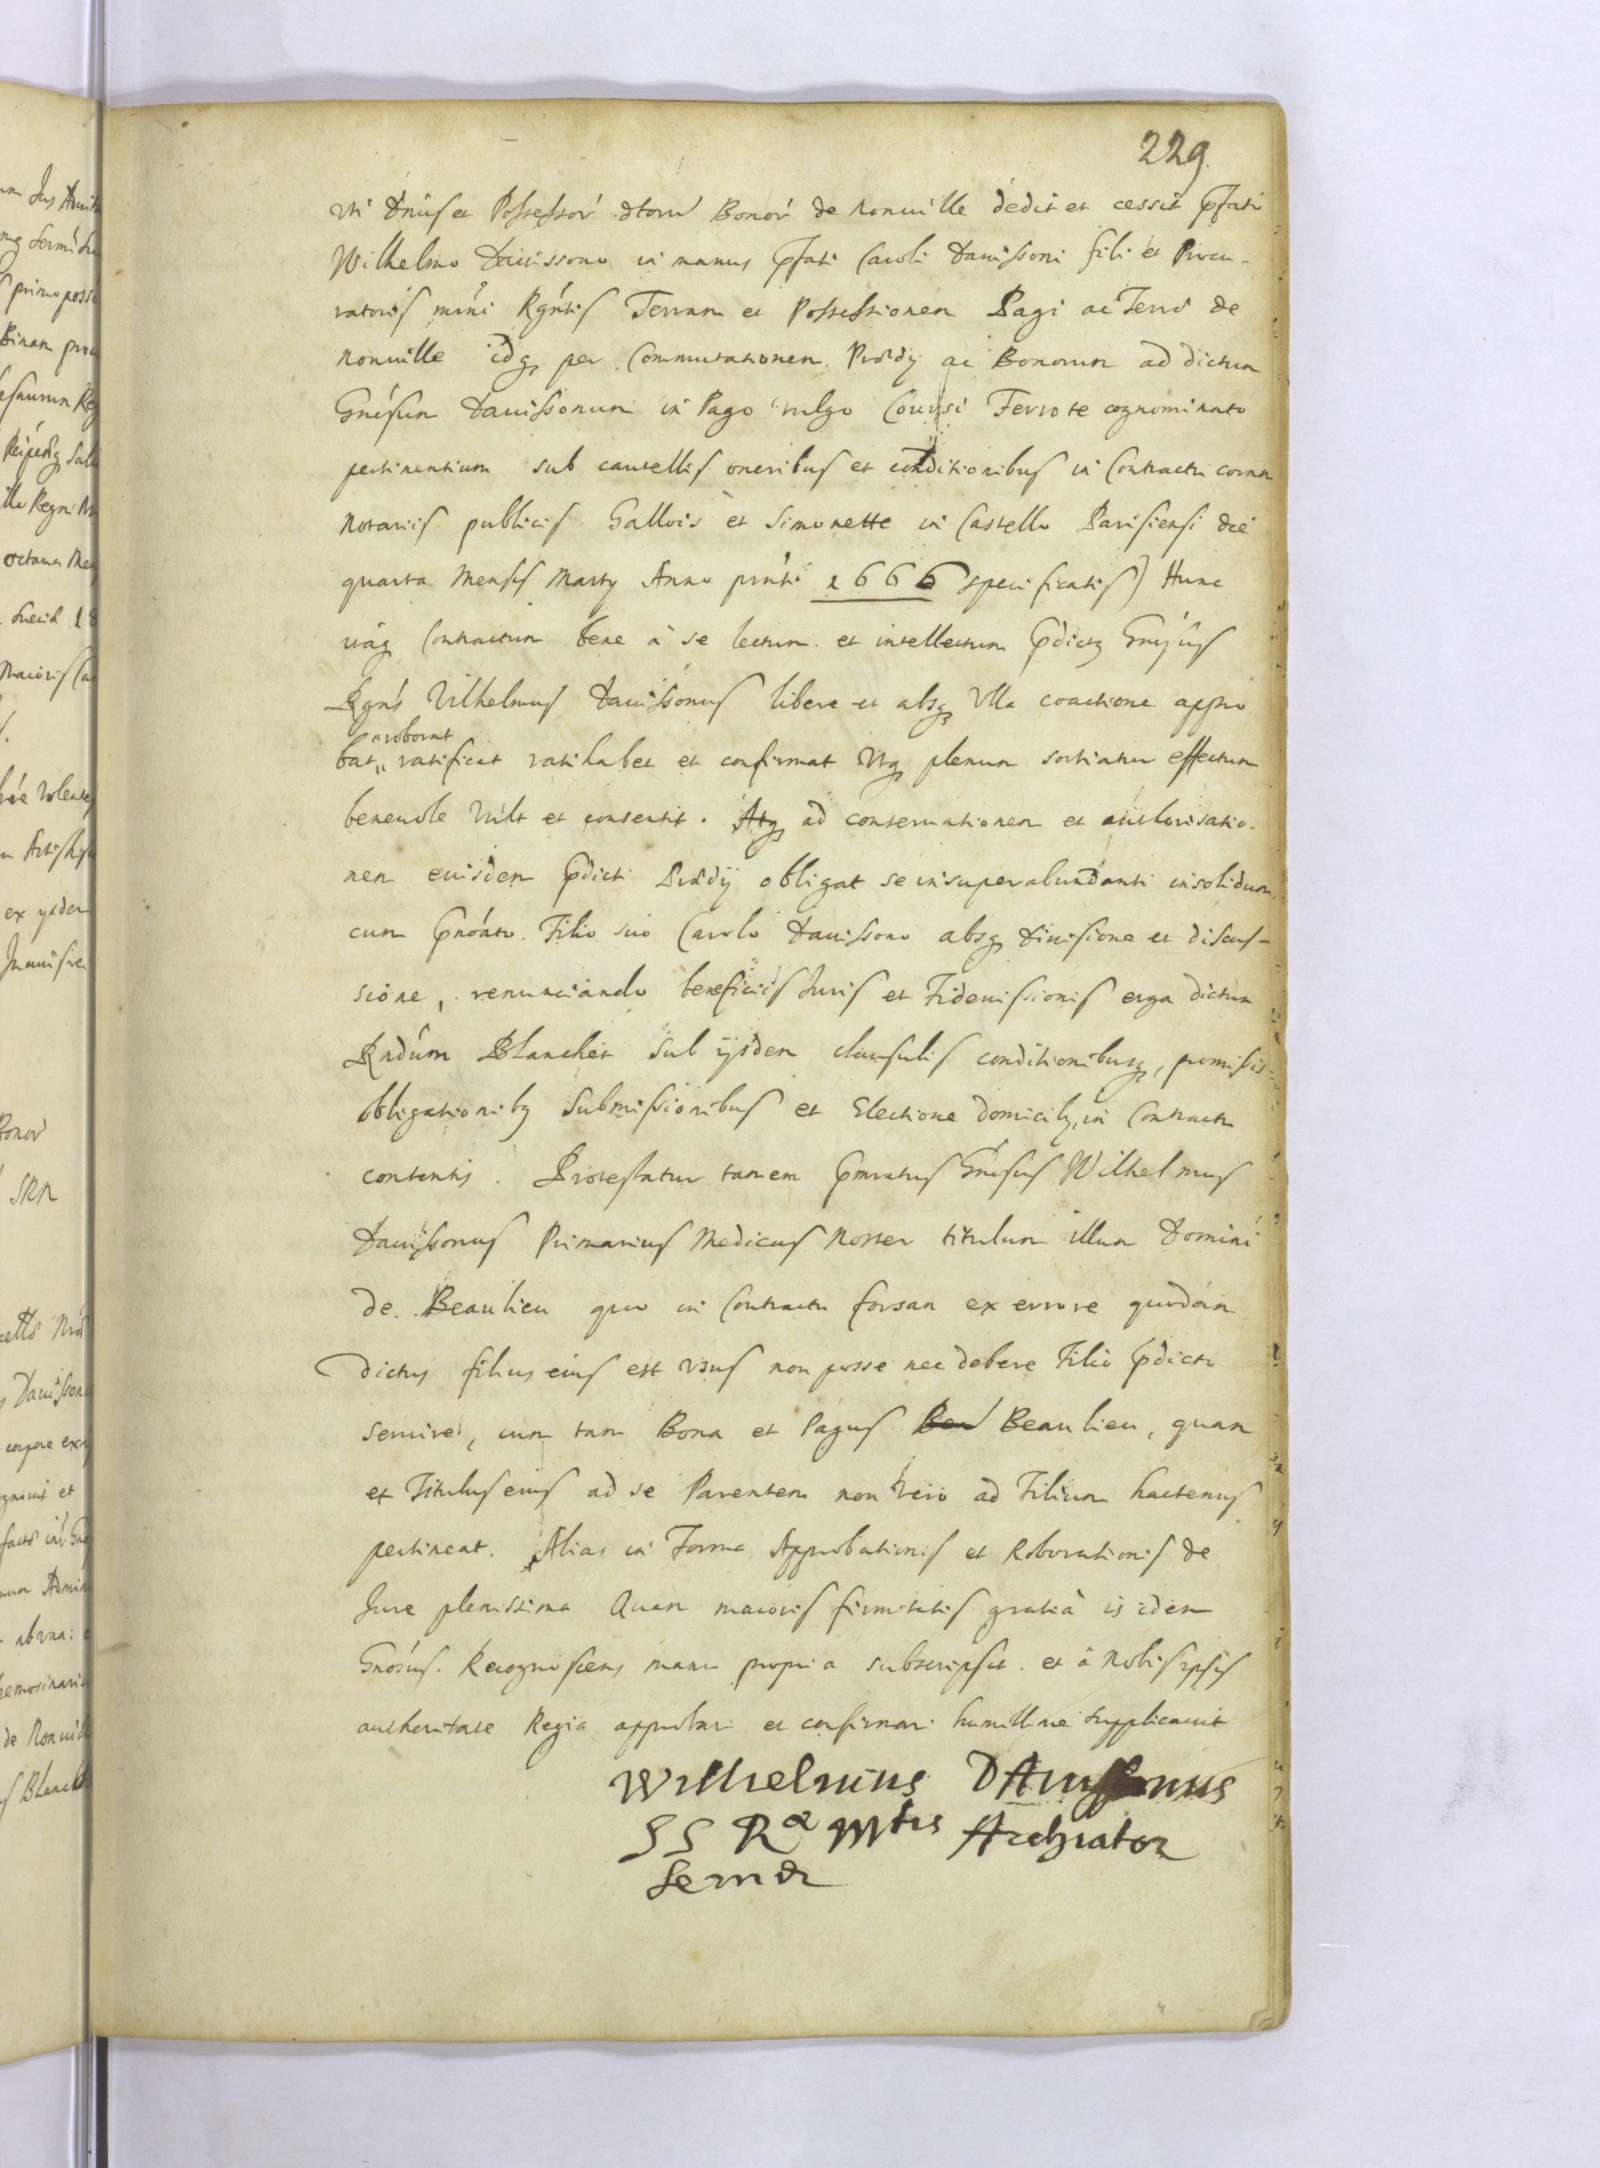 229.
Uti Dnus et Possessor dtorum Bonor de Nonuille dedit et cessit Pfato
Wilhelmo Dauissono in manus Pfati Caroli Dauissoni fili et Procu-
ratoris Rgntis Terram et Possessionem Pagi ac Terrae de
Nonuille idq per Commutationem Praedy ac Bonorum ad dictum
Gnesum Dauissonum in Pago vulgo Coursi Ferrote cognominato
pertinentium sub cautellis oneribus et conditionibus in Contractu coram
Notariis publicis Gallois et Simonette in Castello Parisiensi die
quarta Mensis Marty Anno pnti 1666 specificatis) Hunc
itaq Contractum bene à se lectum et intellectum Pdictq Gnesus
Rgns Vilhelmus Dauissonus libere et absq Vlla coactione appro
bat, roborat ratificat ratihabet et confirmat Vtq plenum sortiatur effectum
beneuole Vult et consentit. Atq ad conseruationem et authorisatio-
nem euisdem Pdicti Praedij obligat se in superabundanti insolidum
cum Pnoato Filio suo Carolo Dauissono absq Diuisione et discus-
sione, renunciando beneficiis Juris et Fideiussionis erga dictum
Rndum Blanchet sub ijsdem clausulis conditionibusq, promissis
obligationibq Submissionibus et Electione domicily, in Contractu
contentis. Protestatur tamen Pmratus Gnesus Wilhelmus
Dauissonus Primarius Medicus Noster titulum illum Domini
de Beaulieu quo in Contractu forsan ex errore quodam
dictus filius eius est vsus non posse nec debere Filio Pdicto
seruire, cum tam Bona et Pagus Beau Beaulieu, quam
et Titulus eius ad se Parentem non Vero ad Filium hactenus
pertineat. Alias in Forma Approbationis et Roborationis de
Jure plenissima Quam maioris firmitatis gratiâ is idem
Gnosus Recognoscens manu propria subscripsit et à Nobis ipsis
authoritate Regia approbari et confirmari humillime supplicauit
Wilhelmus DAuissonus
SS Rae Mtis Archiator
Senior